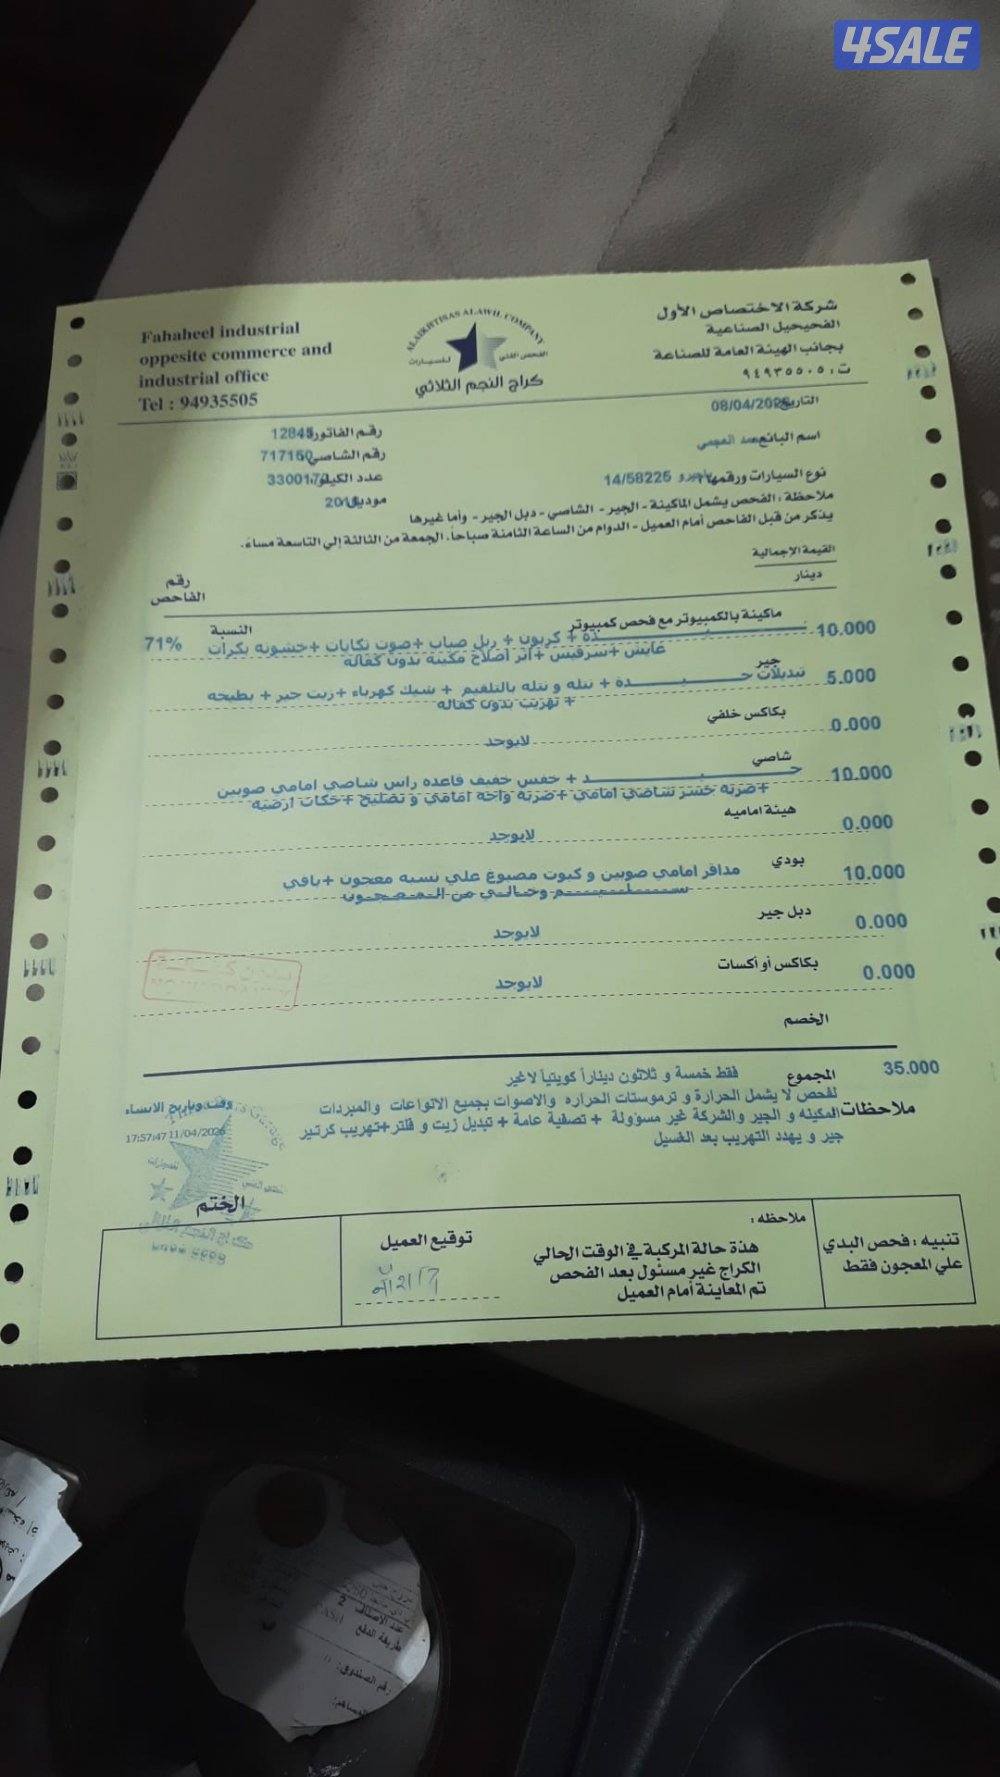 4SALE
Fahaheel industrial
oppesite commerce and
industrial office
Tel : 94935505
ALAIKHTISAS ALAWIL COMPANY
الفحص الفني للسيارات
كراج النجم الثلاثي
شركة الاختصاص الأول
الفحيحيل الصناعية
بجانب الهيئة العامة للصناعة
ت : ٩٤٩٣٥٥٠٥
التاريخ 08/04/2026
رقم الفاتورة 12845
اسم البائع
رقم الشاصي 717150
نوع السيارات ورقمها 14/58225
عدد الكيلو
موديل
ملاحظة : الفحص يشمل الماكينة - الجير - الشاصي - دبل الجير - وأما غيرها
يذكر من قبل الفاحص أمام العميل - الدوام من الساعة الثامنة صباحاً، الجمعة من الثالثة إلي التاسعة مساءً.
القيمة الإجمالية
دينار
رقم الفاحص
ماكينة بالكمبيوتر مع فحص كمبيوتر
النسبة 71%
10.000 + كربون + ربل صباب +صوت تكايات +خشونه بكرات
غايش +سرفيس +اثر اصلاح مكينة بدون كفاله
جير
5.000 تبديلات جـــيـــدة + نتله و نتله بالتلغيم + شيك كهرباء +زيت جير + بطيخه
+ تهريب بدون كفاله
بكاكس خلفي
0.000 لايوجد
شاصي
10.000 جـــيـــد + خفس خفيف قاعده راس شاصي امامي صوبين
+ضربه جسر شاصي امامي +ضربه واجه امامي و تصليح +حكات ارضيه
هيئة اماميه
0.000 لايوجد
بودي
10.000 مدافر امامي صوبين و كبوت مصبوغ علي نسبه معجون +باقي
ســـلـــيـــم وخـالـي من الـمـعـجـون
دبل جير
0.000 لايوجد
بكاكس أو أكسات
0.000 لايوجد
الخصم
المجموع فقط خمسة و ثلاثون ديناراً كويتياً لاغير 35.000
ملاحظات
لفحص لا يشمل الحرارة و ترموستات الحراره والاصوات بجميع الانواعات والمبردات
المكينه و الجير والشركة غير مسؤولة + تصفية عامة + تبديل زيت و فلتر+تهريب كرتير
جير و يهدد التهريب بعد الغسيل
وقت وتاريخ الانشاء
17:57:47 11/04/2026
الختم
تنبيه : فحص البدي
علي المعجون فقط
ملاحظه :
هذة حالة المركبة في الوقت الحالي
الكراج غير مسئول بعد الفحص
تم المعاينة أمام العميل
توقيع العميل
عدد الأصناف 2
طريقة الدفع
رقم الصندوق: